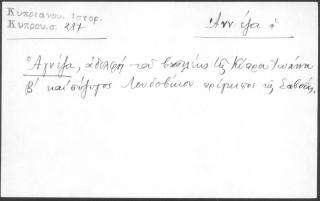 Κυπριανού. Ιστορ.
Κύπρου.σ. 217
Ἀγνέζα, ἀδελφή τοῦ βασιλέως τῆς Κύπρου Ἰωάννου
Β΄ καί σύζυγος Λουδοβίκου πρίγκιπος τῆς Σαβοΐας.